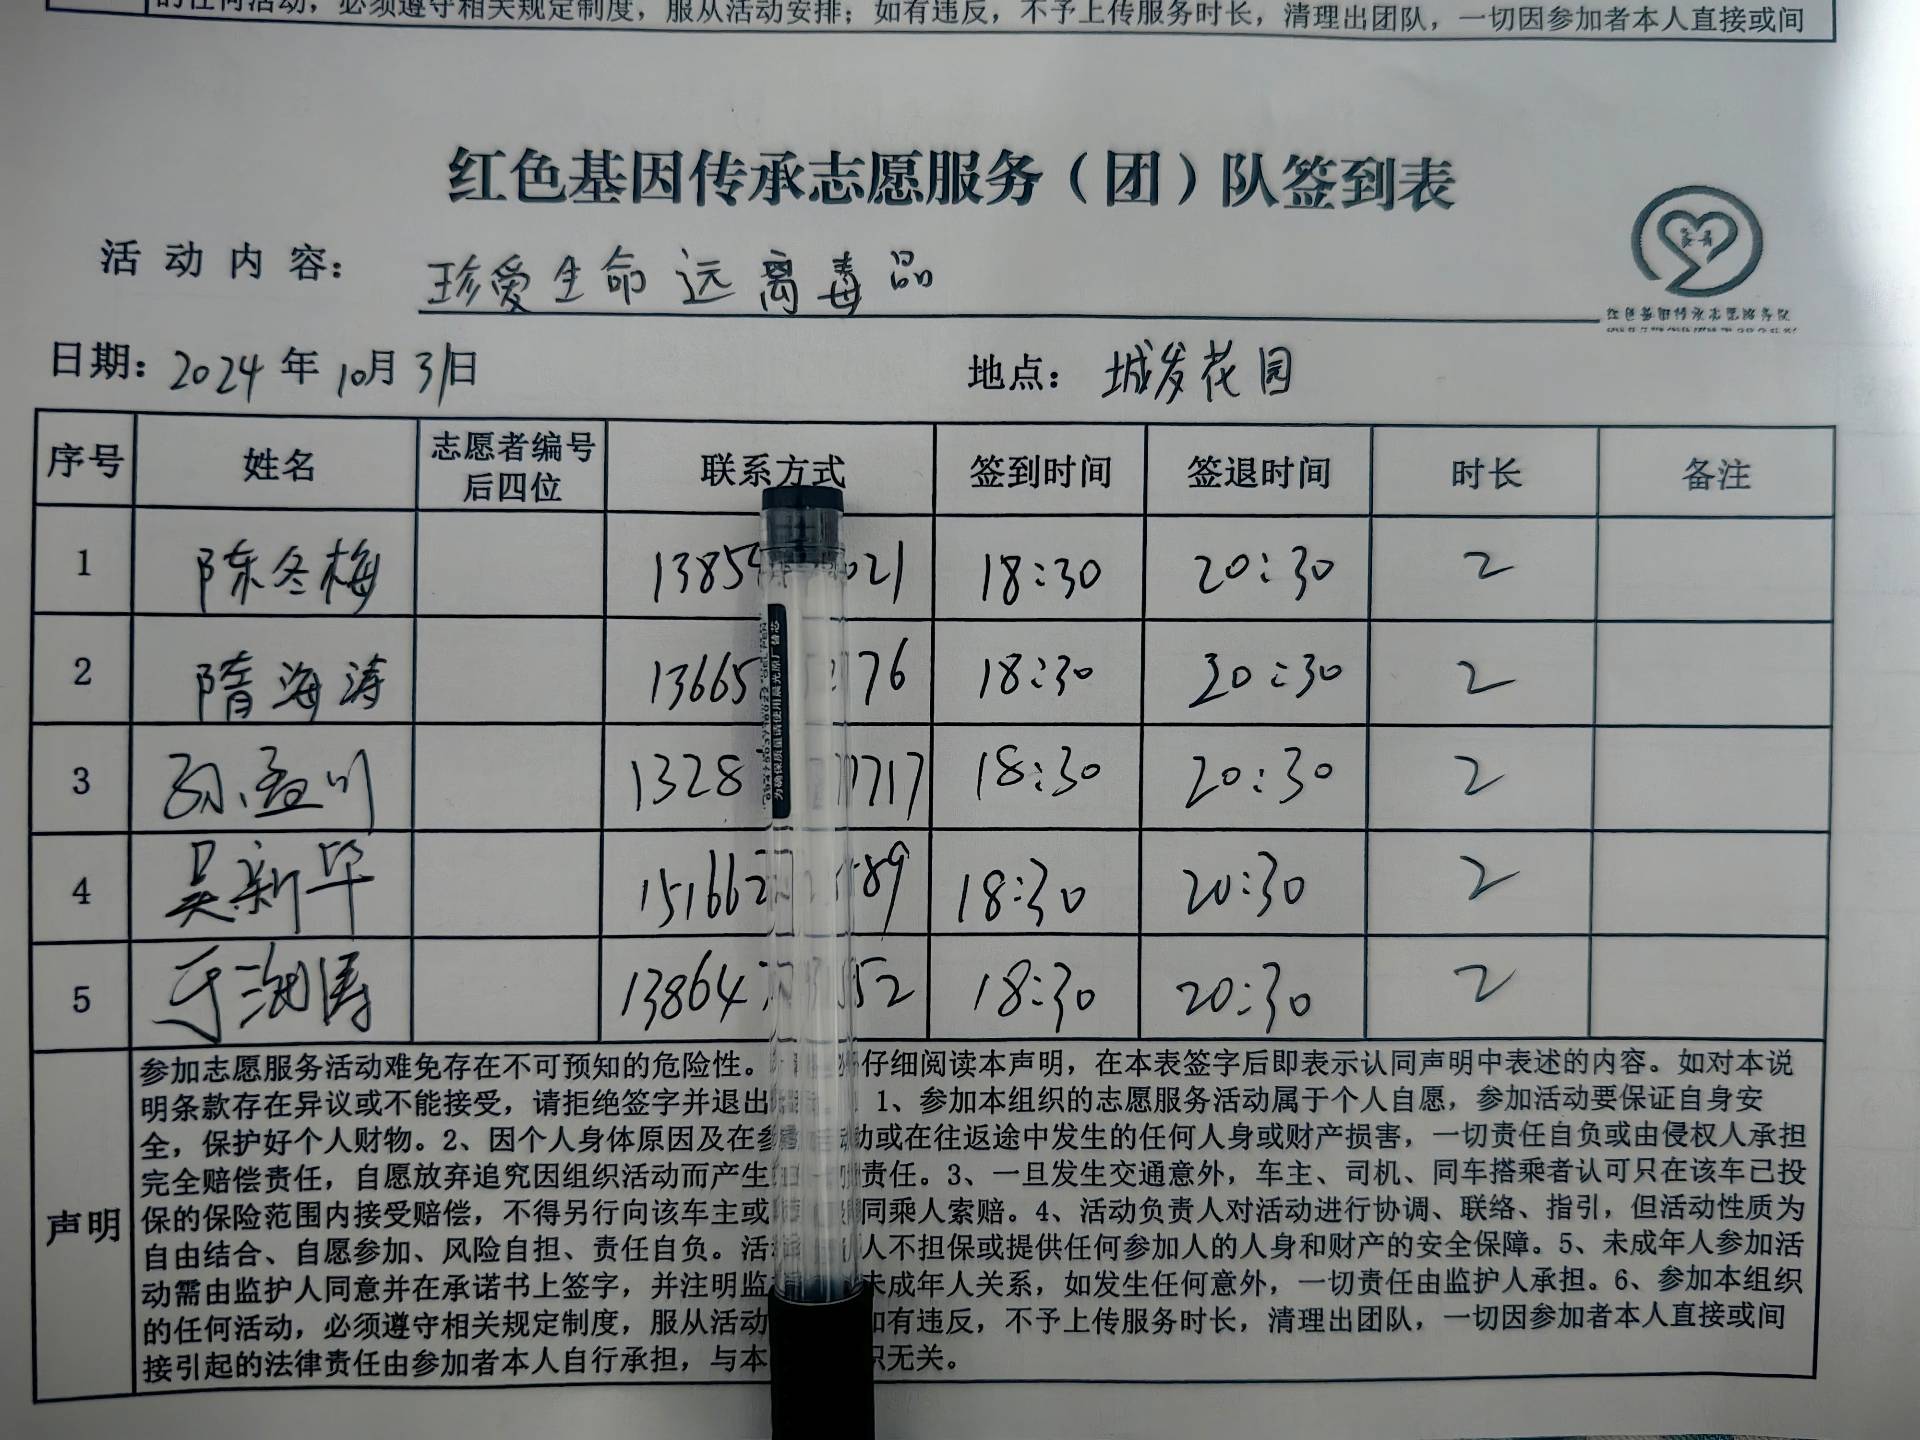 的任何活动，必须遵守相关规定制度，服从活动安排；如有违反，不予上传服务时长，清理出团队，一切因参加者本人直接或间
红色基因传承志愿服务（团）队签到表
活动内容： 珍爱生命远离毒品
日期：2024年10月31日 地点：城发花园
序号 姓名 志愿者编号后四位 联系方式 签到时间 签退时间 时长 备注
1 陈冬梅 1385 021 18:30 20:30 2
2 隋海涛 13665 76 18:30 20:30 2
3 孙孟川 1328 1717 18:30 20:30 2
4 吴新华 15166 89 18:30 20:30 2
5 于涛 13864 52 18:30 20:30 2
声明
参加志愿服务活动难免存在不可预知的危险性。 仔细阅读本声明，在本表签字后即表示认同声明中表述的内容。如对本说
明条款存在异议或不能接受，请拒绝签字并退出 1、参加本组织的志愿服务活动属于个人自愿，参加活动要保证自身安
全，保护好个人财物。2、因个人身体原因及在参 动或在往返途中发生的任何人身或财产损害，一切责任自负或由侵权人承担
完全赔偿责任，自愿放弃追究因组织活动而产生 责任。3、一旦发生交通意外，车主、司机、同车搭乘者认可只在该车已投
保的保险范围内接受赔偿，不得另行向该车主或 同乘人索赔。4、活动负责人对活动进行协调、联络、指引，但活动性质为
自由结合、自愿参加、风险自担、责任自负。活 人不担保或提供任何参加人的人身和财产的安全保障。5、未成年人参加活
动需由监护人同意并在承诺书上签字，并注明监 未成年人关系，如发生任何意外，一切责任由监护人承担。6、参加本组织
的任何活动，必须遵守相关规定制度，服从活动 如有违反，不予上传服务时长，清理出团队，一切因参加者本人直接或间
接引起的法律责任由参加者本人自行承担，与本 织无关。